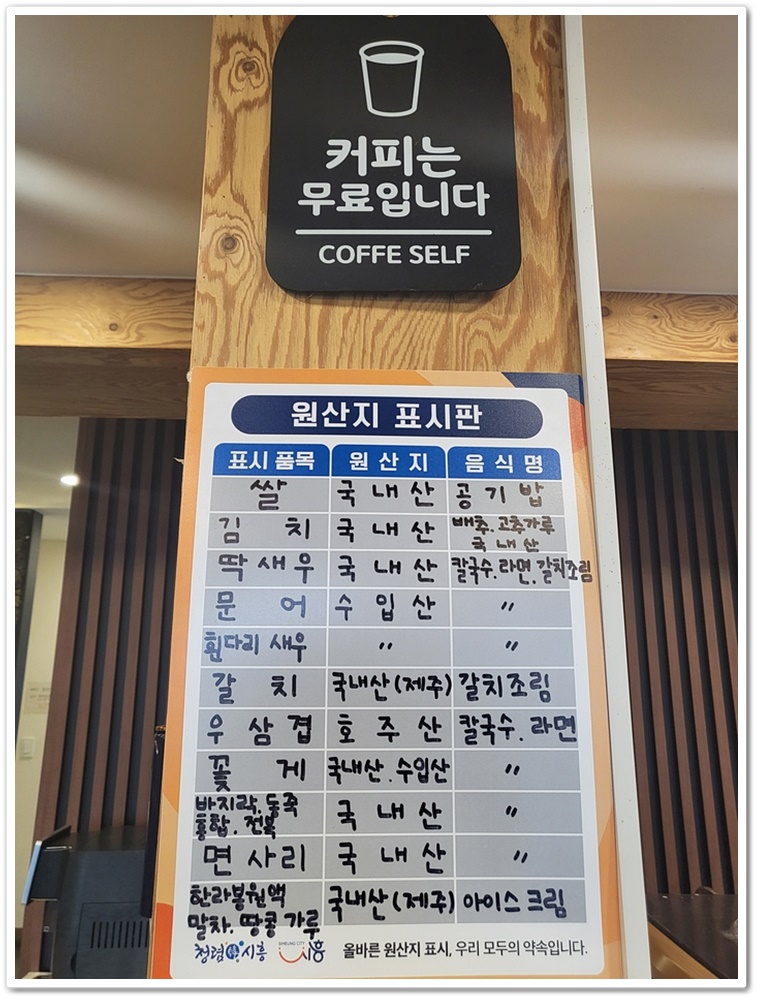 커피는
무료입니다
COFFE SELF
원산지 표시판
표시품목 원산지 음식명
쌀 국내산 공기밥
김치 국내산 배추.고추가루
국내산
딱새우 국내산 칼국수.라면.갈치조림
문어 수입산 〃
흰다리 새우 〃 〃
갈치 국내산(제주) 갈치조림
우삼겹 호주산 칼국수.라면
꽃게 국내산.수입산 〃
바지락.동죽
홍합.전복 국내산 〃
면사리 국내산 〃
한라봉원액
말차.땅콩가루 국내산(제주) 아이스크림
청렴 시흥 SIHEUNG CITY 시흥 올바른 원산지 표시, 우리 모두의 약속입니다.